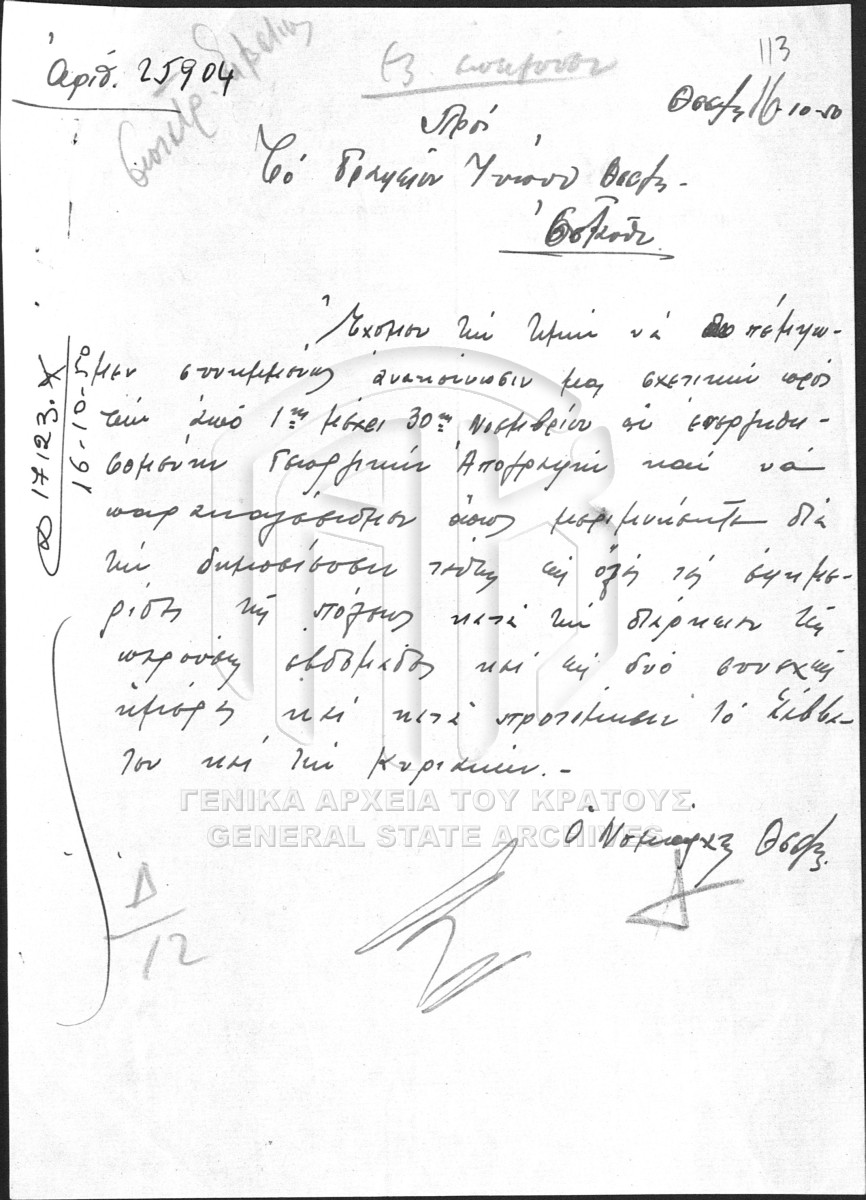 113
Ἀριθ. 25904
Θεσ/νίκη 16-10-50
Πρός
Τό Γραφεῖον Τύπου Θεσ/νίκης
Ἐνταῦθα
Ἔχομεν τήν τιμήν νά πέμψω-
μεν συνημμένως ἀνακοίνωσιν μας σχετικήν πρός
τήν ἀπό 1ης μέχρι 30ης Νοεμβρίου ἐ.ἔ. ἐνεργηθη-
σομένην Γεωργικήν Ἀπογραφήν καί νά
παρακαλέσωμεν ὅπως μεριμνήσητε διά
τήν δημοσίευσιν ταύτης εἰς ὅλες τές ἐφημε-
ρίδες τῆς πόλεως κατά τήν διάρκειαν τῆς
παρούσης ἑβδομάδος καί εἰς δύο συνεχεῖς
ἡμέρας καί κατά προτίμησιν τό Σάββα-
τον καί τήν Κυριακήν.-
Ὁ Νομάρχης Θεσ/νίκης
17123.Χ
16-10-50
Δ/12
ΓΕΝΙΚΑ ΑΡΧΕΙΑ ΤΟΥ ΚΡΑΤΟΥΣ
GENERAL STATE ARCHIVES